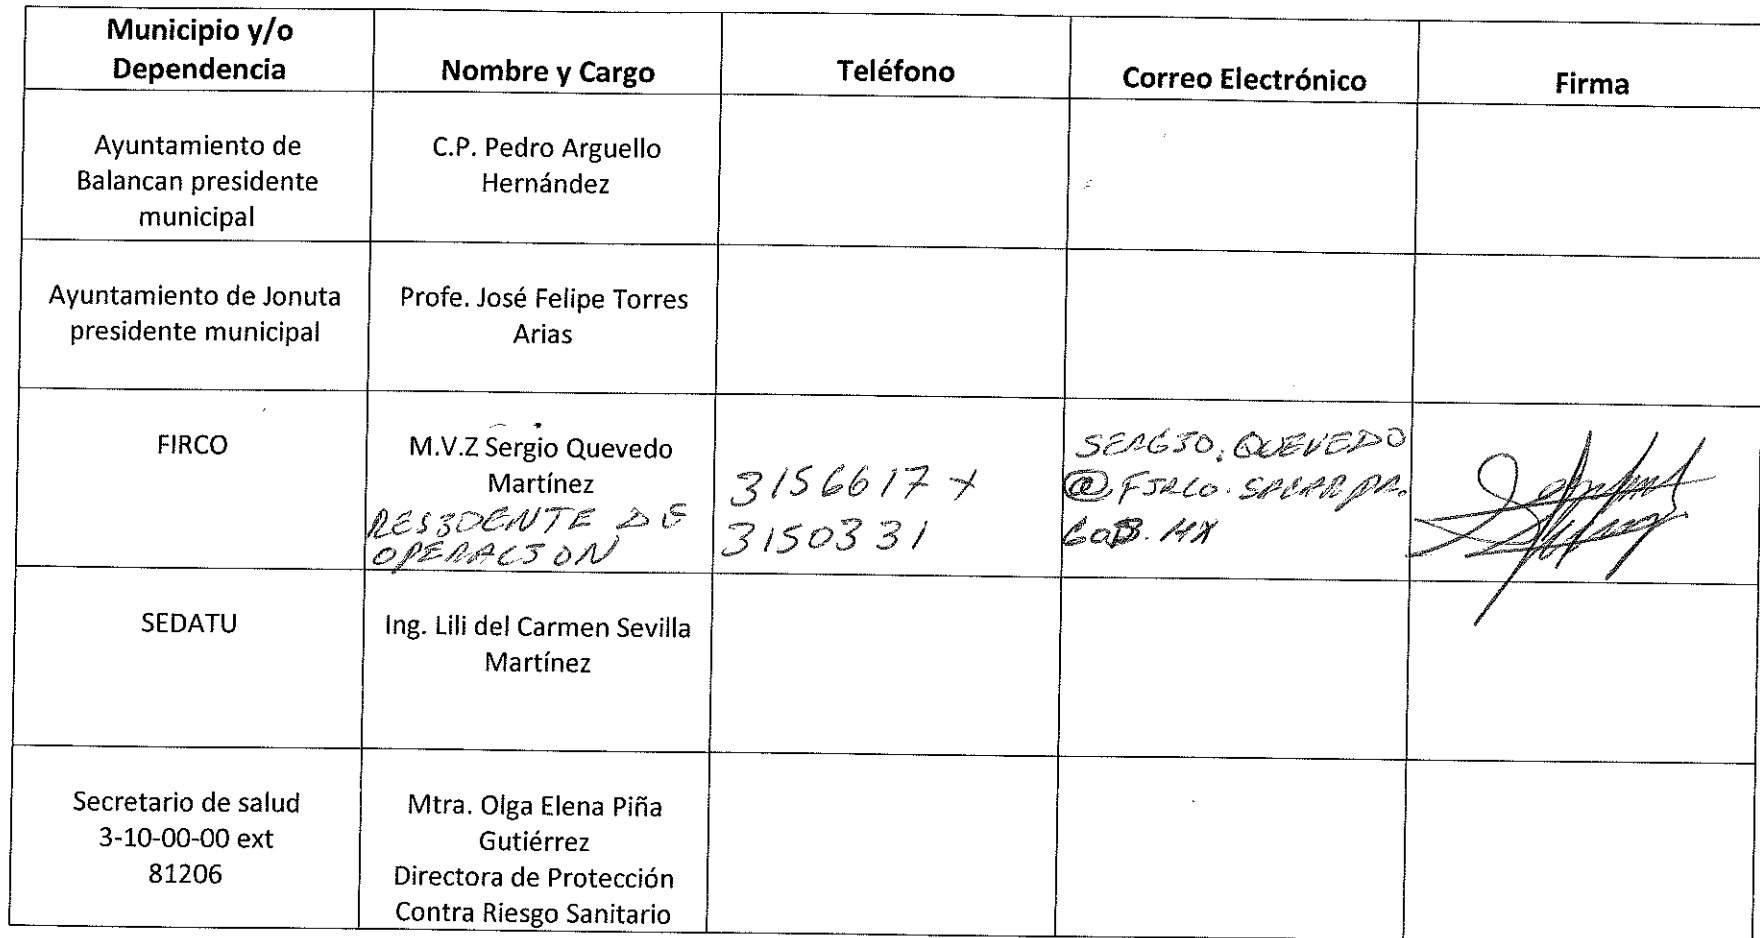 Municipio y/o
Dependencia
Nombre y Cargo
Teléfono
Correo Electrónico
Firma
Ayuntamiento de
Balancan presidente
municipal
C.P. Pedro Arguello
Hernández
Ayuntamiento de Jonuta
presidente municipal
Profe. José Felipe Torres
Arias
FIRCO
M.V.Z Sergio Quevedo
Martínez
RESIDENTE DE
OPERACION
3156617 y
3150331
SERGIO.QUEVEDO
@FIRCO.SAGARPA.
GOB.MX
SEDATU
Ing. Lili del Carmen Sevilla
Martínez
Secretario de salud
3-10-00-00 ext
81206
Mtra. Olga Elena Piña
Gutiérrez
Directora de Protección
Contra Riesgo Sanitario